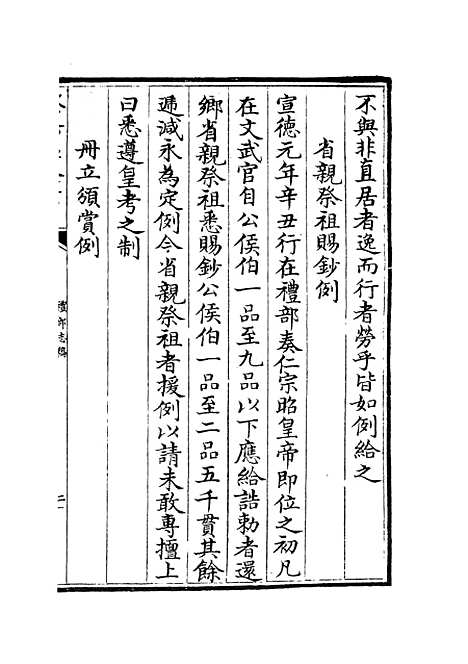 不與非直居者逸而行者勞乎皆如例給之
省親祭祖賜鈔例
宣德元年辛丑行在禮部奏仁宗昭皇帝即位之初凡
在文武官自公侯伯一品至九品以下應給誥勅者還
鄉省親祭祖悉賜鈔公侯伯一品至二品五千貫其餘
遞減永為定例今省親祭祖者援例以請未敢專擅上
曰悉遵皇考之制
冊立頒賞例
禮部志稿